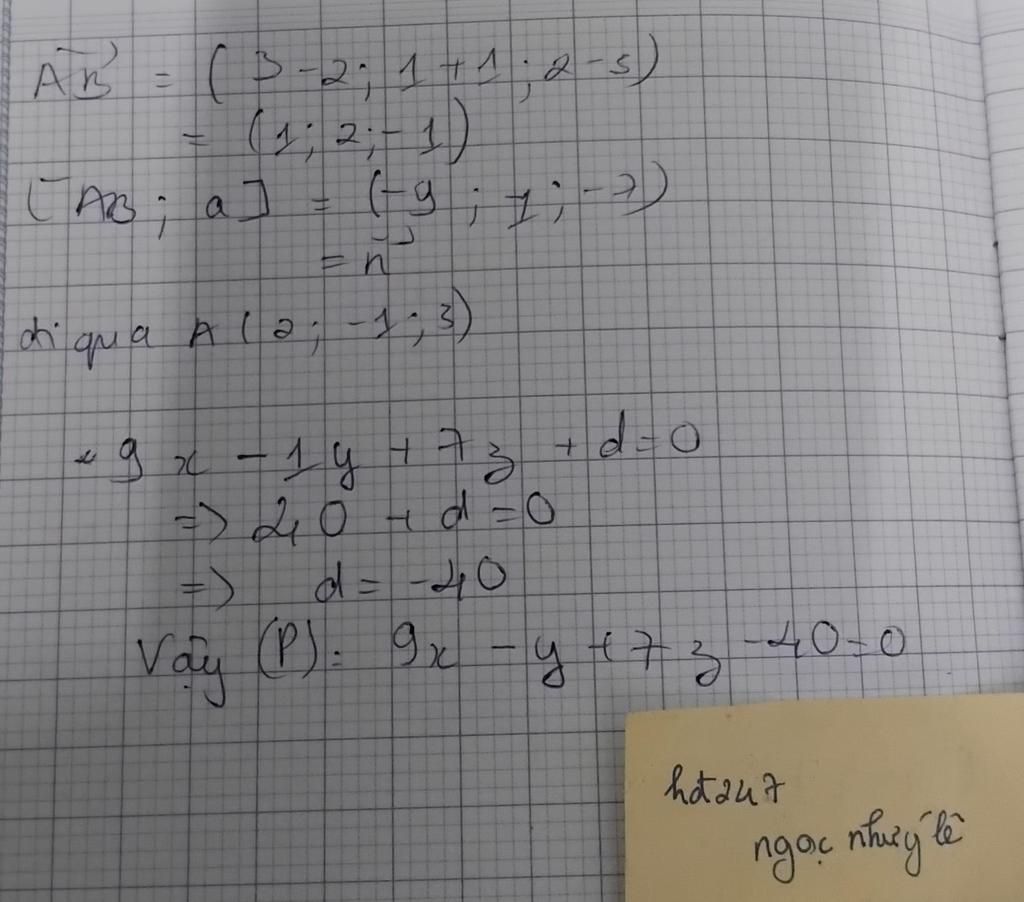 AB = (3-2; 1+1; 2-3)
= (1; 2; -1)
[AB; a] = (-9; 1; -7)
= n
đi qua A(2; -1; 3)
9x - 1y + 7z + d = 0
=> 40 + d = 0
=> d = -40
Vậy (P): 9x - y + 7z - 40 = 0
hd247
ngọc như ý lê